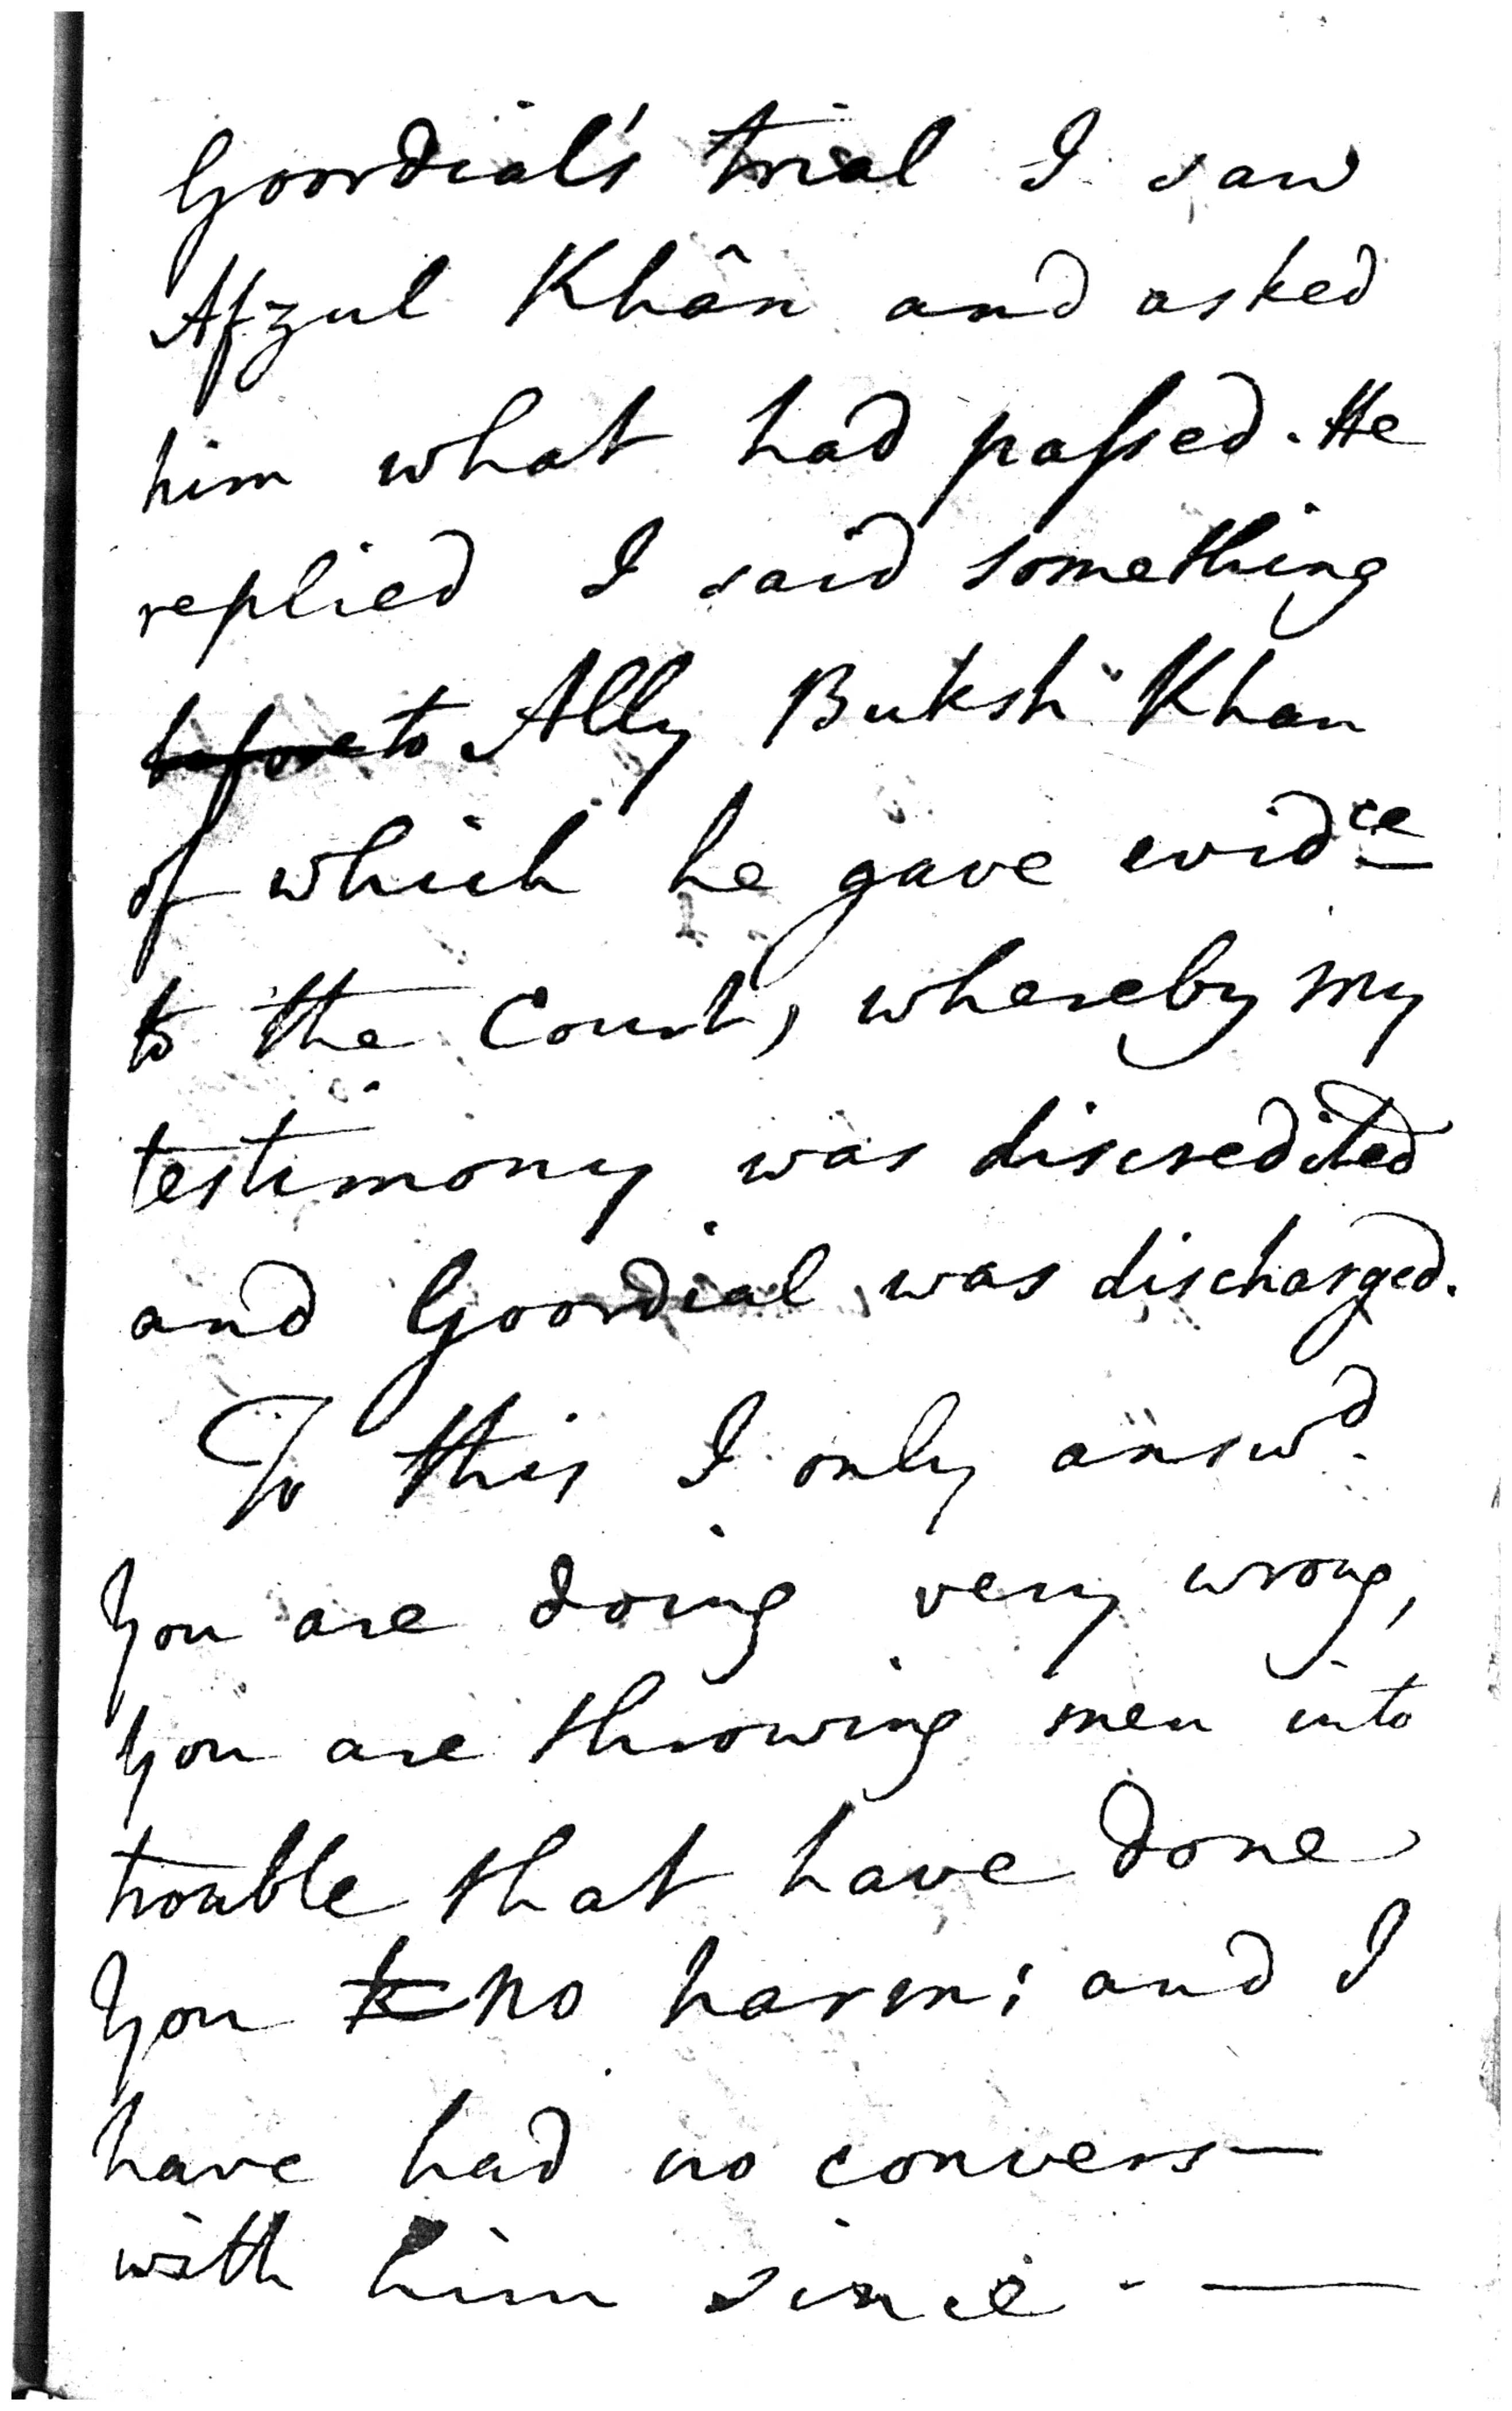 Goordial's trial I saw
Afzul Khân and asked
him what had paſsed. He
replied I said something
before to Ally Buksh Khan
of which he gave evidce
to the Court, whereby my
testimony was discredited
and Goordial was discharged.
To this I only answd.
you are doing very wrong,
you are throwing men into
trouble that have done
you no harm; and I
have had no convers—
with him since. —